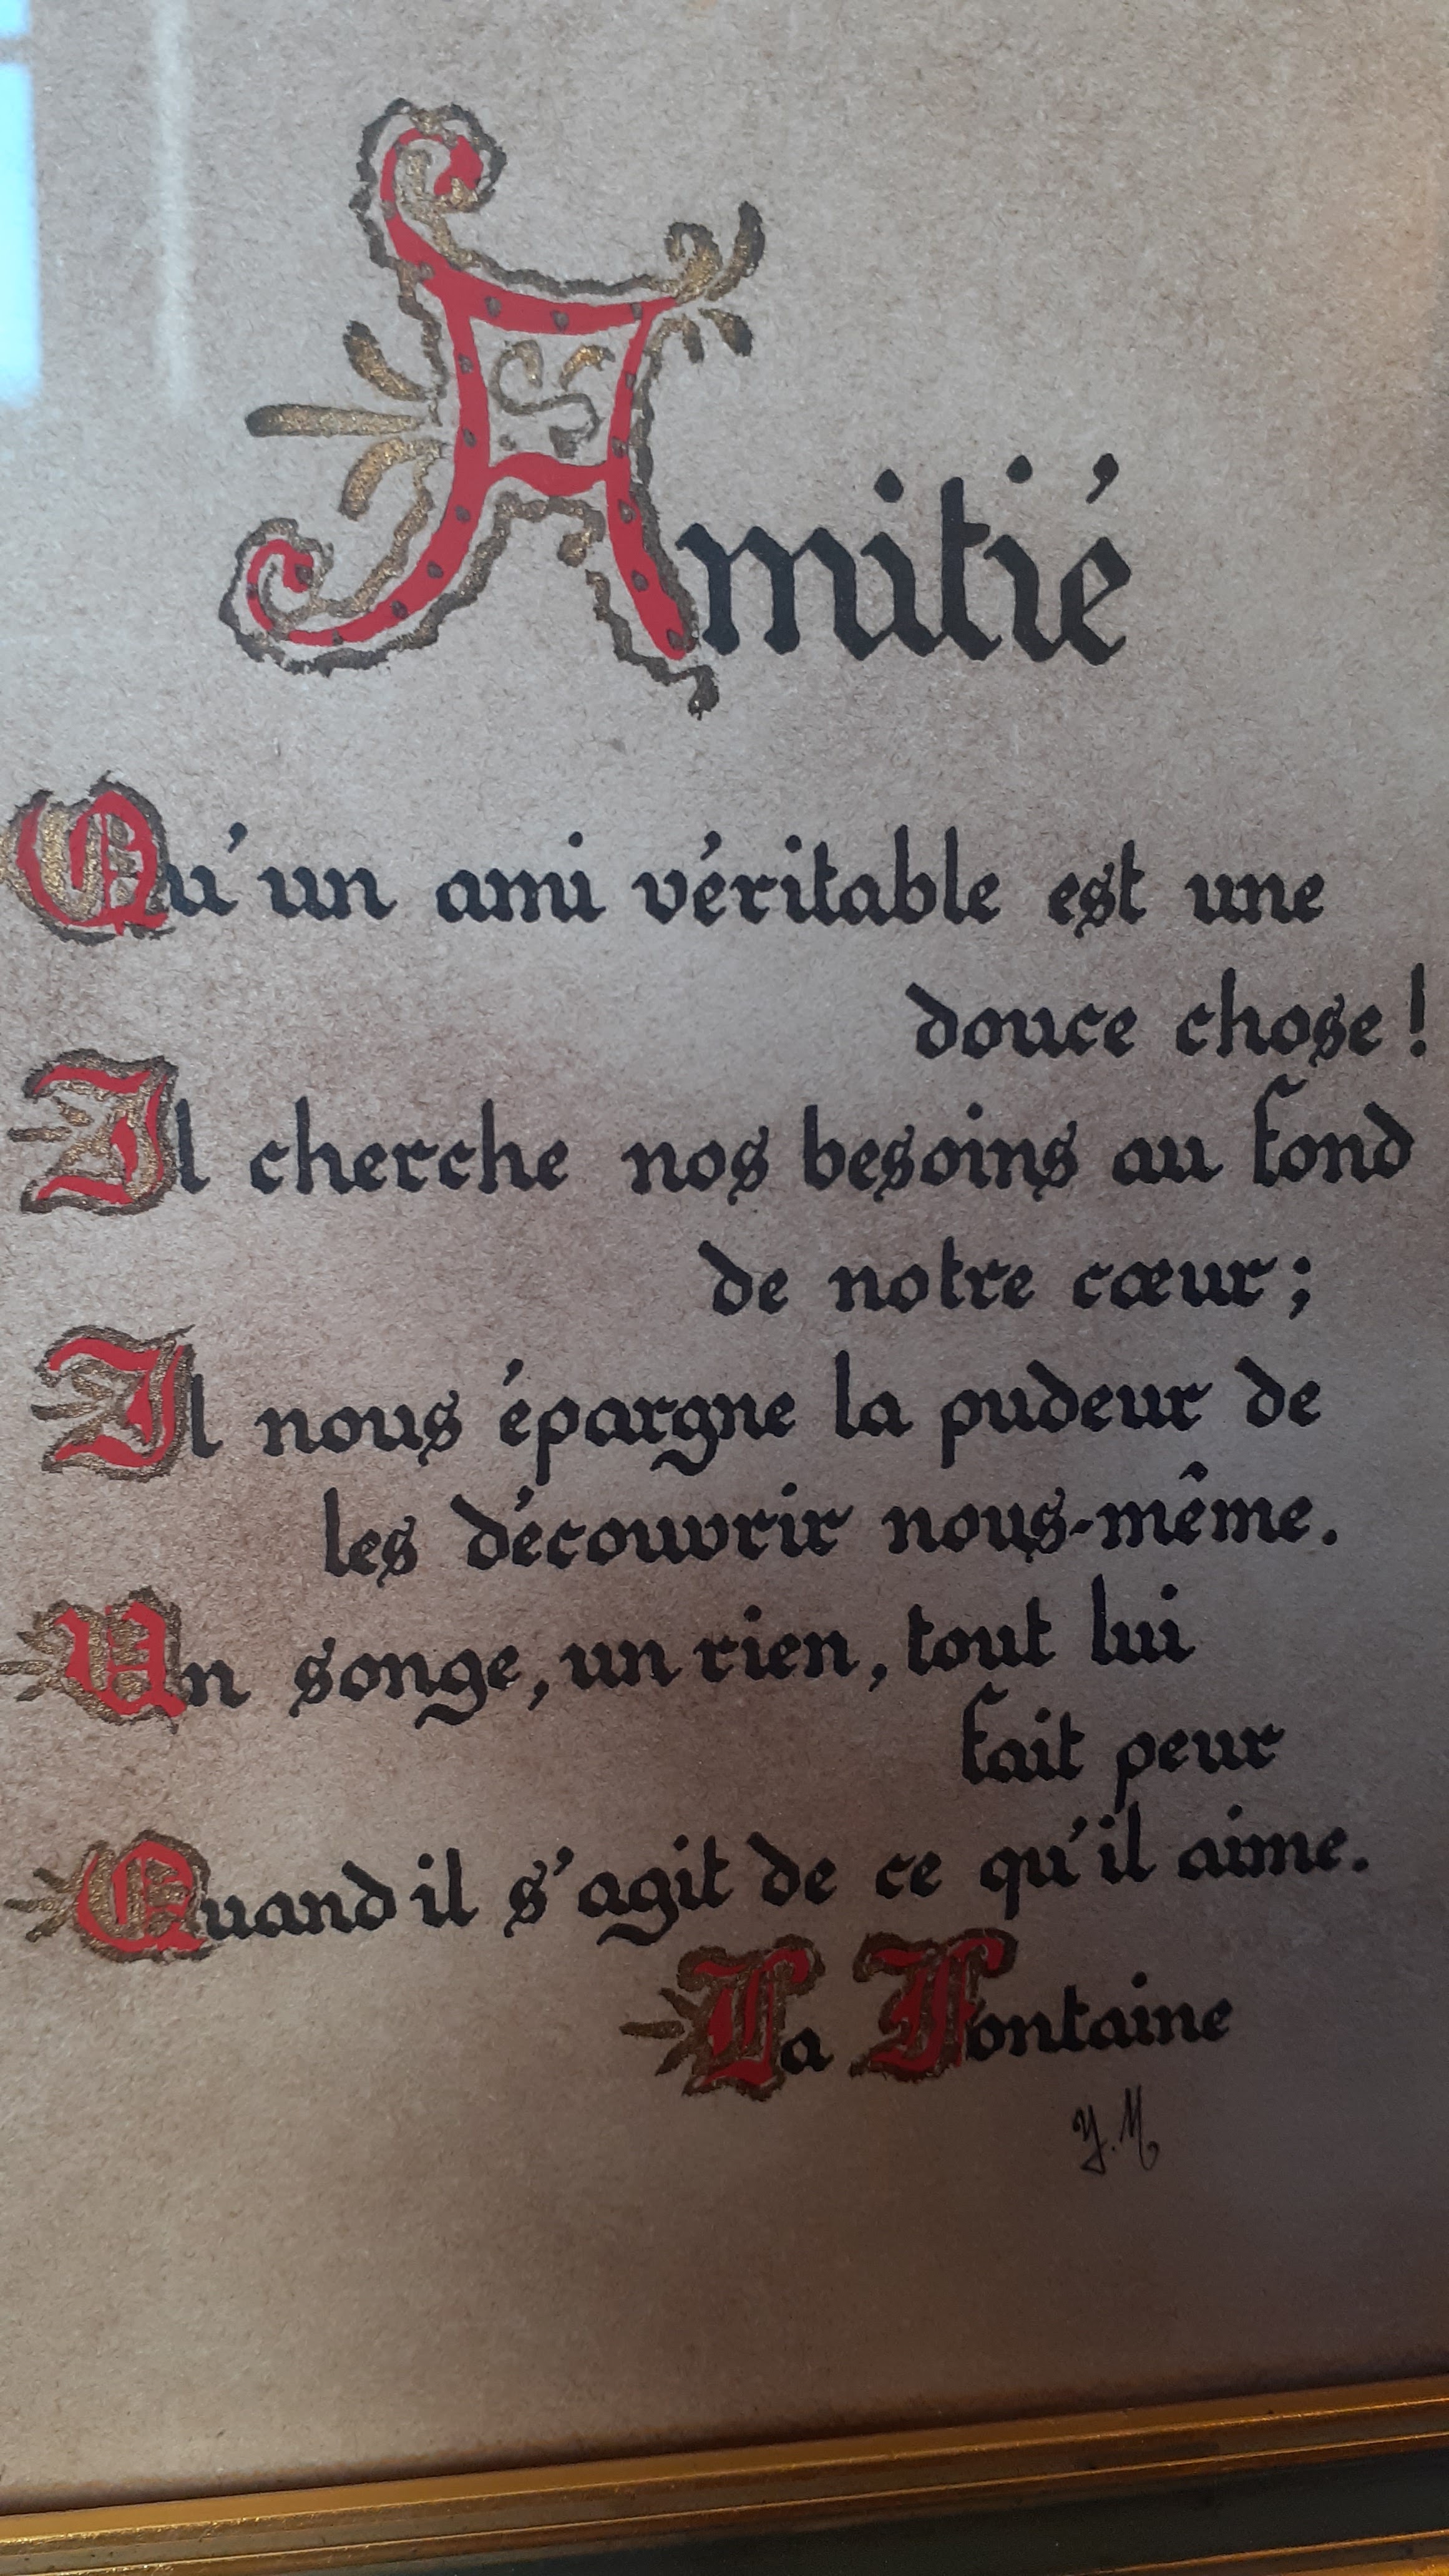 Amitié
Qu'un ami véritable est une
douce chose !
Il cherche nos besoins au fond
de notre cœur ;
Il nous épargne la pudeur de
les découvrir nous-même.
Un songe, un rien, tout lui
fait peur
Quand il s'agit de ce qu'il aime.
La Fontaine
Y.M